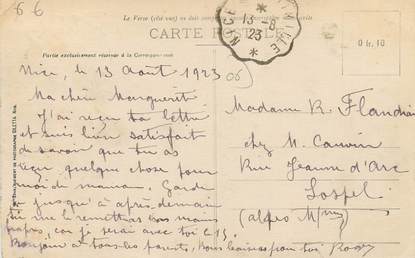 6 6
CARTE POSTALE
13-8
23
0 fr. 10
Partie exclusivement réservée à la Correspondance
Nice, le 13 Août 1923
Ma chère Marguerite
J'ai reçu ta lettre
et suis bien satisfait
de savoir que tu as
reçu quelque chose pour
moi de maman. Garde
le jusqu'à après-demain
tu me le remettras en mains
propres, car je serai avec toi le 15.
Bonjour à tous les parents, bons baisers pour toi. Roger
Madame R. Flandrin
chez M. Cauvin
Rue Jeanne d'Arc
Sospel
(Alpes Mmes)